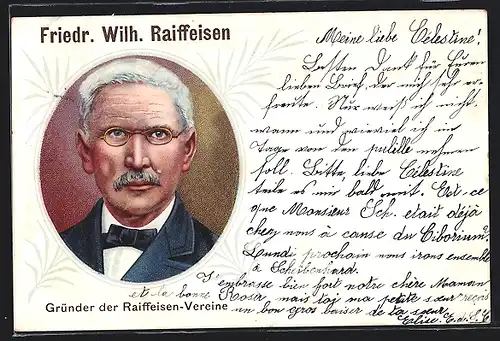 Friedr. Wilh. Raiffeisen
Meine liebe Célestine!
Besten Dank für Euren
lieben Brief der mich sehr er-
freute. Nur weiß ich nicht,
wann und wieviel ich im
Tage von den nehmen
soll. Bitte, liebe Célestine
teile es mir bald mit. Est-ce
que Monsieur Sch. était déjà
chez nous à cause du Ciborium?
Lundi prochain nous irons ensemble
à
J'embrasse bien fort notre chère Maman
et la bonne Rosa mais toi ma petite sœur reçois
un bon gros baiser de ta sœur
Elise.
Gründer der Raiffeisen-Vereine